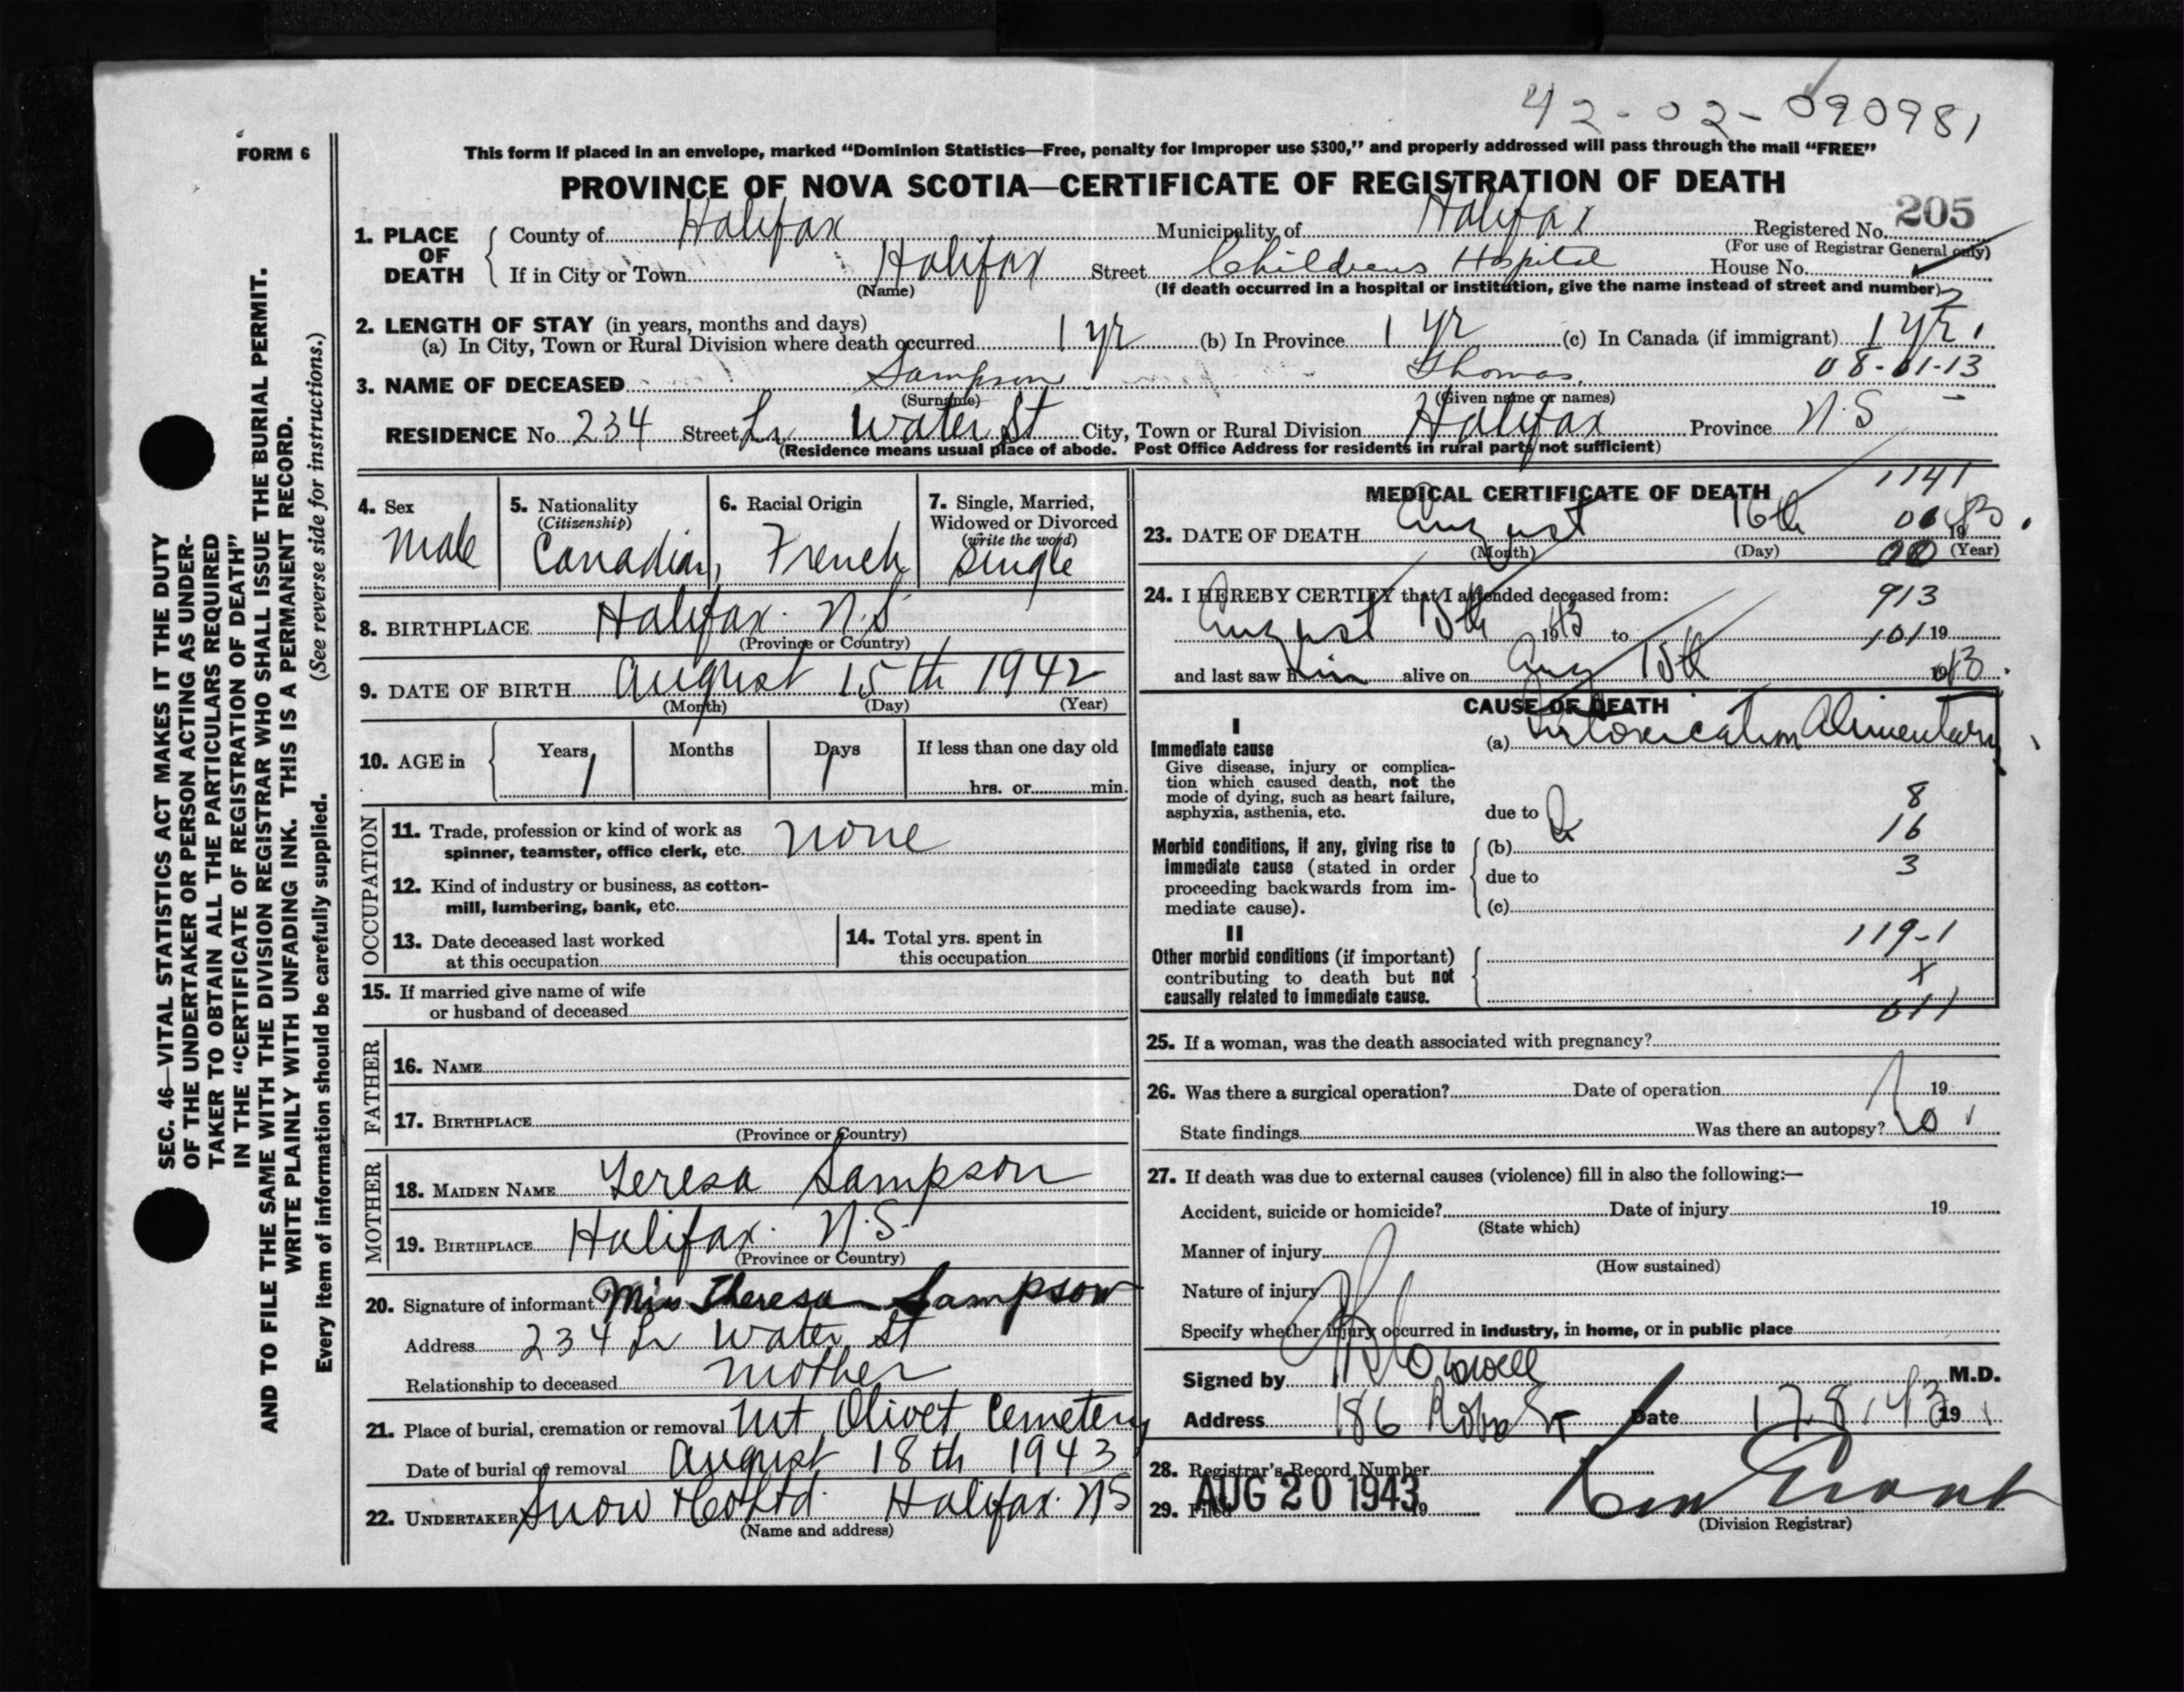 42-02-090981
FORM 6
This form if placed in an envelope, marked “Dominion Statistics—Free, penalty for improper use $300,” and properly addressed will pass through the mail “FREE”
PROVINCE OF NOVA SCOTIA—CERTIFICATE OF REGISTRATION OF DEATH
205
1. PLACE OF DEATH
County of Halifax Municipality of Halifax Registered No.
(For use of Registrar General only)
If in City or Town Halifax Street Childrens Hospital House No.
(Name) (If death occurred in a hospital or institution, give the name instead of street and number)
2. LENGTH OF STAY (in years, months and days)
(a) In City, Town or Rural Division where death occurred 1 yr (b) In Province 1 yr (c) In Canada (if immigrant) 1 yr
3. NAME OF DECEASED Sampson Thomas 08-01-13
(Surname) (Given name or names)
RESIDENCE No. 234 Street Lr Water St City, Town or Rural Division Halifax Province N.S
(Residence means usual place of abode. Post Office Address for residents in rural parts not sufficient)
SEC. 46—VITAL STATISTICS ACT MAKES IT THE DUTY
OF THE UNDERTAKER OR PERSON ACTING AS UNDER-
TAKER TO OBTAIN ALL THE PARTICULARS REQUIRED
IN THE “CERTIFICATE OF REGISTRATION OF DEATH”
AND TO FILE THE SAME WITH THE DIVISION REGISTRAR WHO SHALL ISSUE THE BURIAL PERMIT.
WRITE PLAINLY WITH UNFADING INK. THIS IS A PERMANENT RECORD.
Every item of information should be carefully supplied. (See reverse side for instructions.)
4. Sex
Male
5. Nationality
(Citizenship)
Canadian
6. Racial Origin
French
7. Single, Married,
Widowed or Divorced
(write the word)
Single
8. BIRTHPLACE Halifax. N.S
(Province or Country)
9. DATE OF BIRTH August 15th 1942
(Month) (Day) (Year)
10. AGE in Years Months Days If less than one day old
1 1 hrs. or min.
OCCUPATION
11. Trade, profession or kind of work as
spinner, teamster, office clerk, etc. none
12. Kind of industry or business, as cotton-
mill, lumbering, bank, etc.
13. Date deceased last worked
at this occupation
14. Total yrs. spent in
this occupation
15. If married give name of wife
or husband of deceased
FATHER
16. NAME
17. BIRTHPLACE
(Province or Country)
MOTHER
18. MAIDEN NAME Teresa Sampson
19. BIRTHPLACE Halifax. N.S.
(Province or Country)
20. Signature of informant Miss Theresa Sampson
Address 234 Lr Water St
Relationship to deceased mother
21. Place of burial, cremation or removal Mt Olivet Cemetery
Date of burial or removal August 18th 1943
22. UNDERTAKER Snow & Co Ltd. Halifax. NS
(Name and address)
MEDICAL CERTIFICATE OF DEATH
1141
23. DATE OF DEATH August 16th 19 43
(Month) (Day) (Year)
24. I HEREBY CERTIFY that I attended deceased from:
913
August 15th 1943 to 19
101
and last saw him alive on Aug 15th 1943
CAUSE OF DEATH
I
Immediate cause
Give disease, injury or complica-
tion which caused death, not the
mode of dying, such as heart failure,
asphyxia, asthenia, etc.
(a) Intoxication Alimentary
due to
8
16
3
Morbid conditions, if any, giving rise to
immediate cause (stated in order
proceeding backwards from im-
mediate cause).
(b)
due to
(c)
II
Other morbid conditions (if important)
contributing to death but not
causally related to immediate cause.
119-1
x
611
25. If a woman, was the death associated with pregnancy?
26. Was there a surgical operation? Date of operation 19
State findings Was there an autopsy? No
27. If death was due to external causes (violence) fill in also the following:—
Accident, suicide or homicide? Date of injury 19
(State which)
Manner of injury
(How sustained)
Nature of injury
Specify whether injury occurred in industry, in home, or in public place
Signed by M.D.
Address 186 Robie St Date 17.8.43 19
28. Registrar's Record Number
29. Filed AUG 20 1943 19
(Division Registrar)